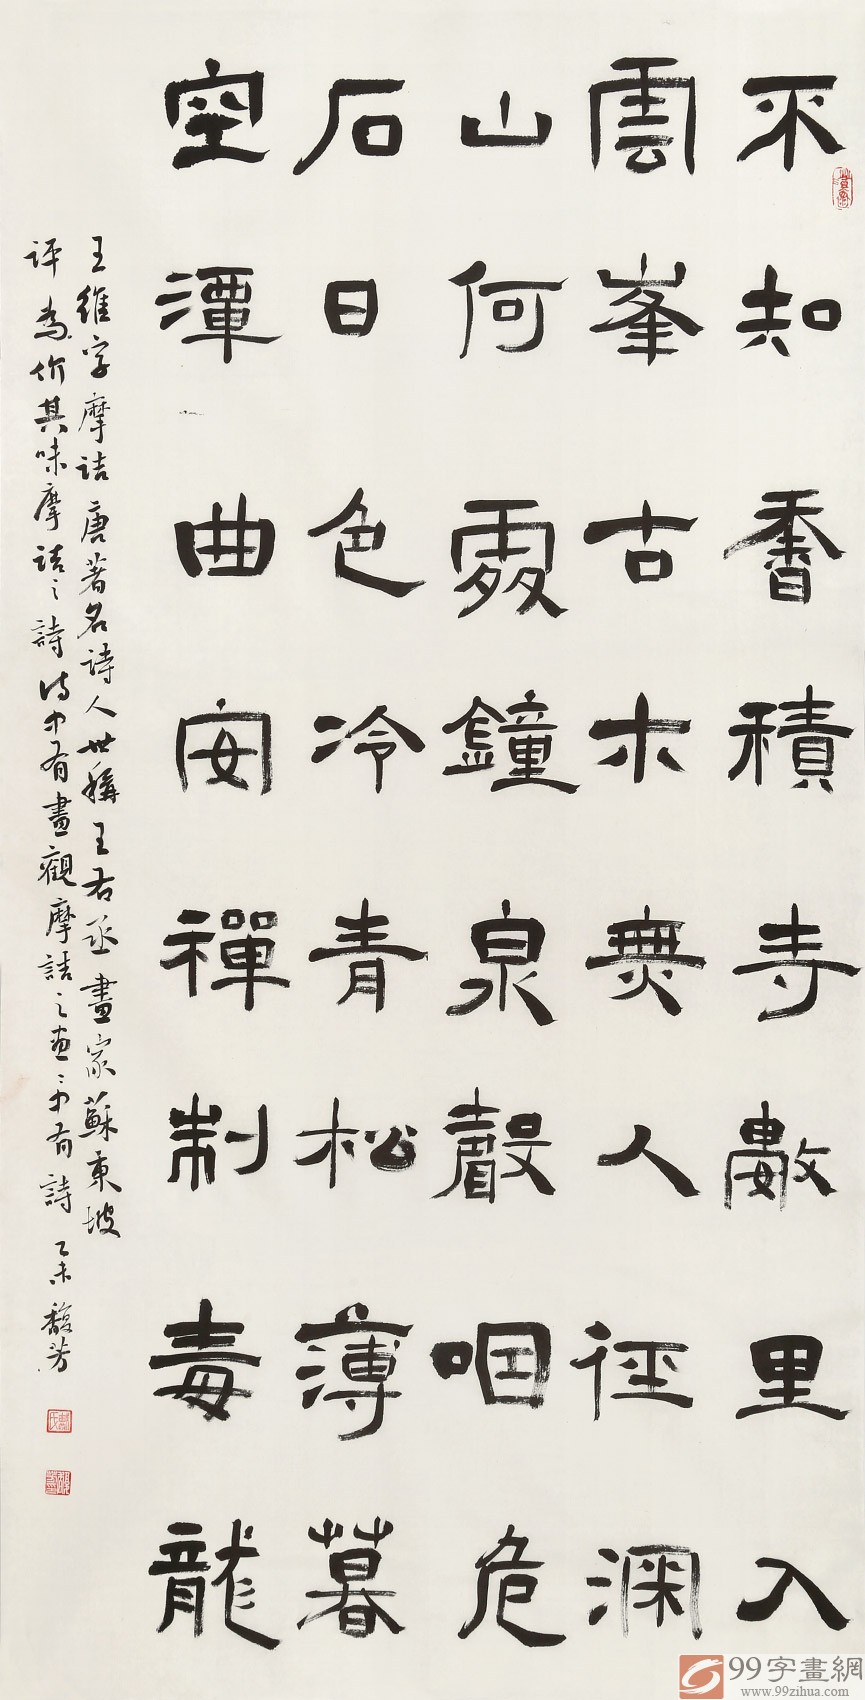 不知香積寺數里入
雲峯古木無人徑深
山何處鐘泉聲咽危
石日色冷青松薄暮
空潭曲安禪制毒龍
王維字摩詰唐著名詩人世稱王右丞畫家蘇東坡
评為价其味摩詰之詩诗中有畫觀摩詰之画〻中有詩 乙未 馥芳
99字畫網
www.99zihua.com